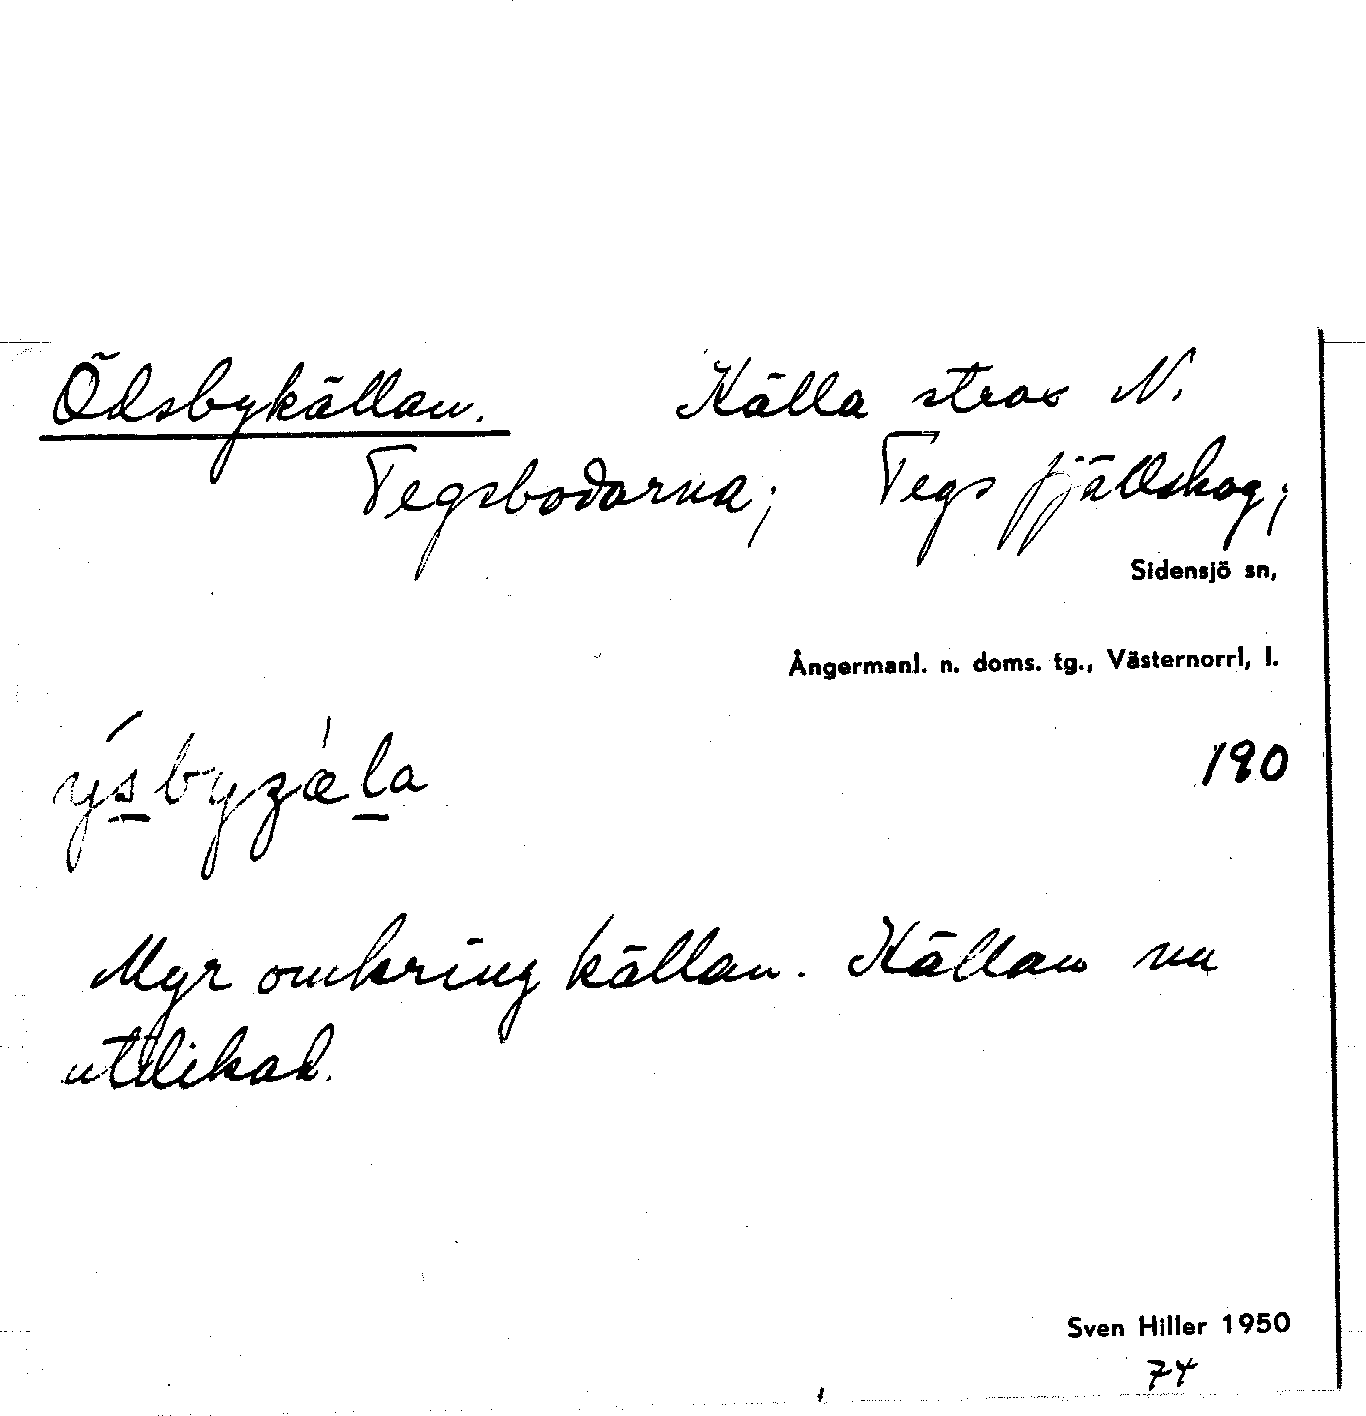 Ödsbykällan. Källa strax N.
Tegsbodarna; Tegs fjällskog;
Sidensjö sn,
Ångermanl. n. doms. tg., Västernorrl, l.
ýsbyzæ̀la 190
Myr omkring källan. Källan nu
utdikad.
Sven Hiller 1950
74